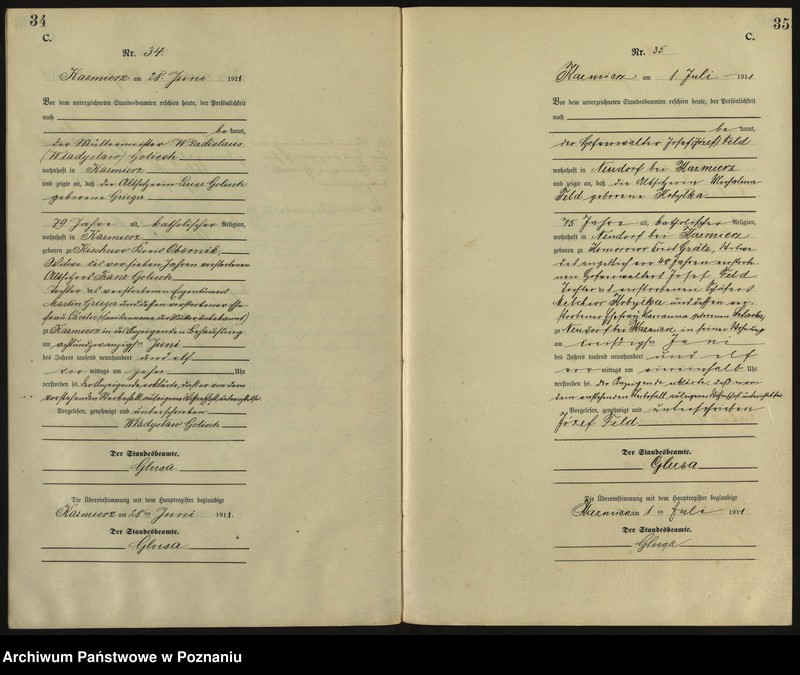 34
C.
Nr. 34.
Kazmierz am 28. Juni 1911.
Vor dem unterzeichneten Standesbeamten erschien heute, der Persönlichkeit
nach
be kannt,
der Müllermeister Wladislaus
(Władysław) Golisch
wohnhaft in Kazmierz
und zeigte an, daß die Altsitzerin Golisch
geborene Grieger
79 Jahre alt, katholischer Religion,
wohnhaft in Kazmierz
geboren zu Kreis Obornik,
Witwe des vor sieben Jahren verstorbenen
Altsitzers Golisch
Tochter des verstorbenen Eigentümers
Martin Grieger und dessen verstorbener Ehe-
frau Cäcilie (Familienname der Mutter unbekannt)
zu Kazmierz in des Anzeigenden Behausung
am Juni
des Jahres tausend neunhundert und elf
vor mittags um zehn Uhr
verstorben sei. Der Anzeigende erklärte, daß er von dem
vorstehenden Sterbefall aus eigener Wissenschaft unterrichtet sei.
Vorgelesen, genehmigt und unterschrieben
Władysław Golisch
Der Standesbeamte.
Glusa
Die Übereinstimmung mit dem Hauptregister beglaubigt
Kazmierz am 28ten Juni 1911.
Der Standesbeamte.
Glusa
35
C.
Nr. 35
Kazmierz am 1. Juli 1911
Vor dem unterzeichneten Standesbeamten erschien heute, der Persönlichkeit
nach
be kannt,
der Hofverwalter Josef (Józef) Feld
wohnhaft in Neudorf bei Kazmierz
und zeigte an, daß die Altsitzerin Michalina
Feld geborene Kobylka
75 Jahre alt, katholischer Religion,
wohnhaft in Neudorf bei Kazmierz
geboren zu Kreis Grätz, Witwe
des angeblich vor 40 Jahren verstorbe-
nen Hofverwalters Josef Feld
Tochter des verstorbenen Schäfers
Melchior Kobylka und dessen ver-
storbener Ehefrau Marianna geborenen
zu Neudorf bei Kazmierz in seiner Wohnung
am dreißigsten Juni
des Jahres tausend neunhundert und elf
vor mittags um Uhr
verstorben sei. Der Anzeigende erklärte, daß er von
dem vorstehenden Sterbefall aus eigener Wissenschaft unterrichtet sei.
Vorgelesen, genehmigt und unterschrieben
Józef Feld
Der Standesbeamte.
Glusa
Die Übereinstimmung mit dem Hauptregister beglaubigt
Kazmierz am 1 ten Juli 1911
Der Standesbeamte.
Glusa
Archiwum Państwowe w Poznaniu